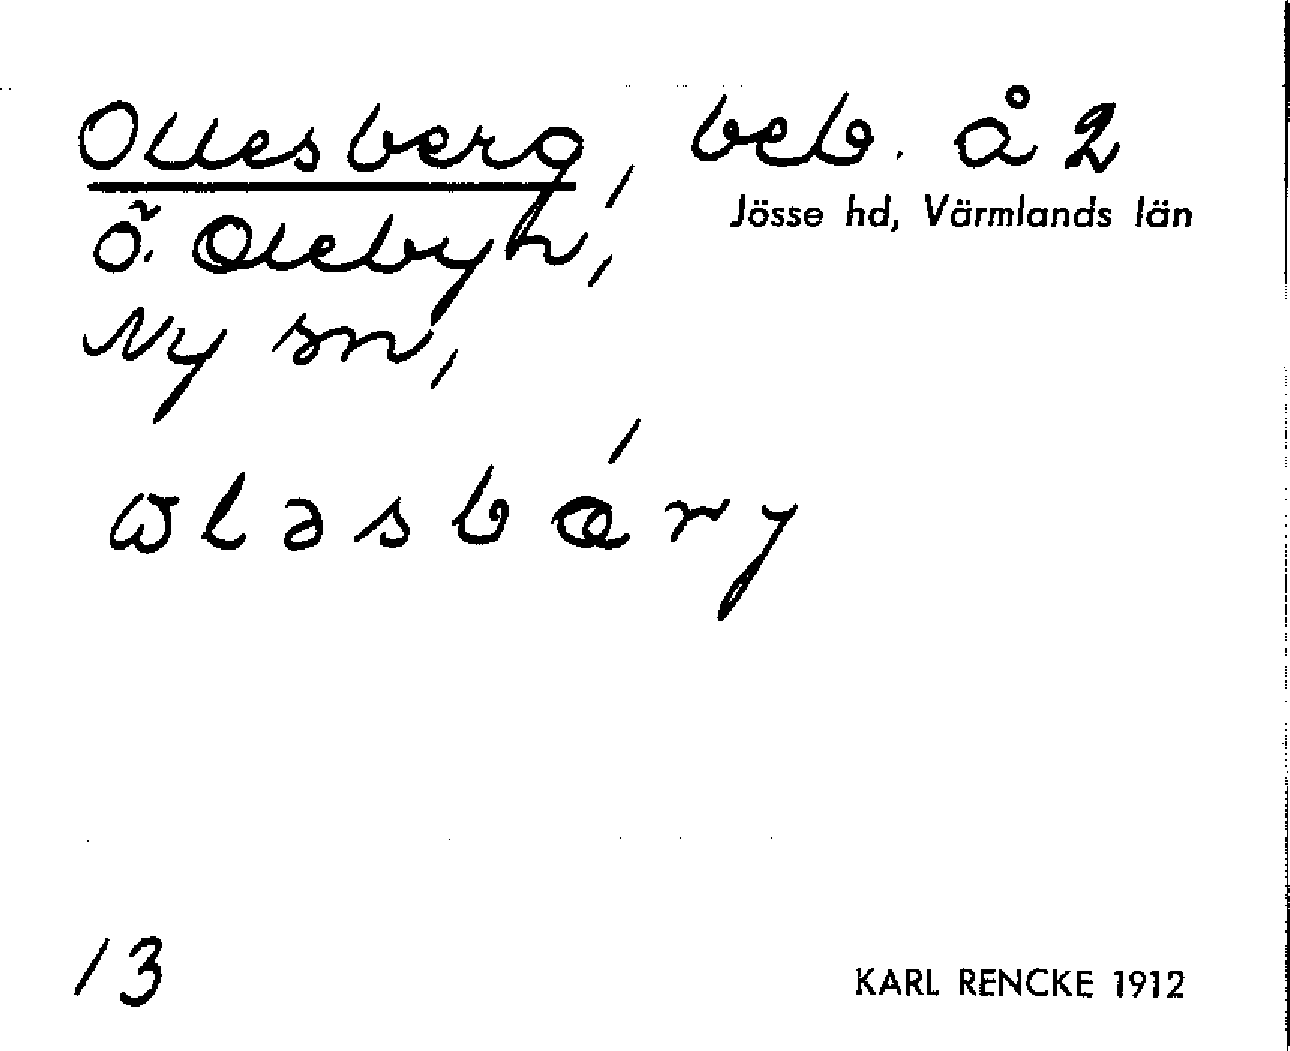 Ollesberg, beb. å 2
Jösse hd, Värmlands län
Ö. Olebyn,
Ny sn,
13
KARL RENCKE 1912